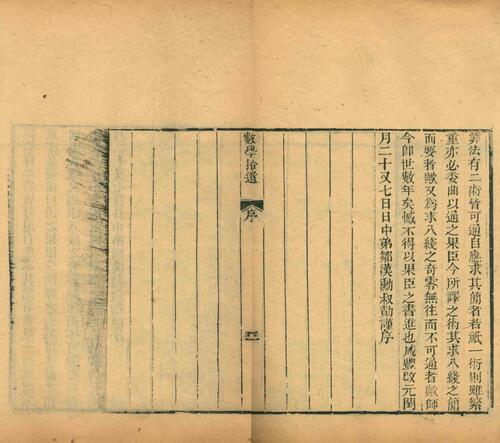 算法有二術皆可通自應求其簡者若祇一術則雖繁
重亦必委曲以通之果臣今所譯之術其求八綫之簡
而要者歟又爲求八綫之奇零無往而不可通者歟師
今卽世數年矣憾不得以果臣之書進也咸豐改元閏
月二十又七日日中弟鄒漢勳叔勣謹序
數學拾遺
序